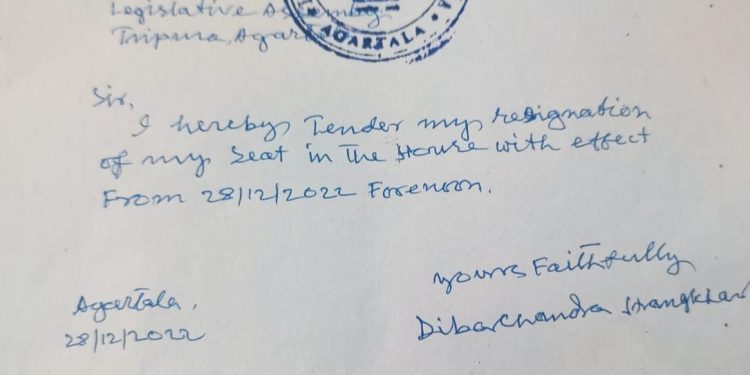 Legislative Assembly
Tripura, Agart
* AGARTALA *
Sir,
I hereby Tender my resignation
of my Seat in The House with effect
From 28/12/2022 Forenoon.
Yours Faithfully
Dibachandra Hrangkhawl
Agartala,
28/12/2022